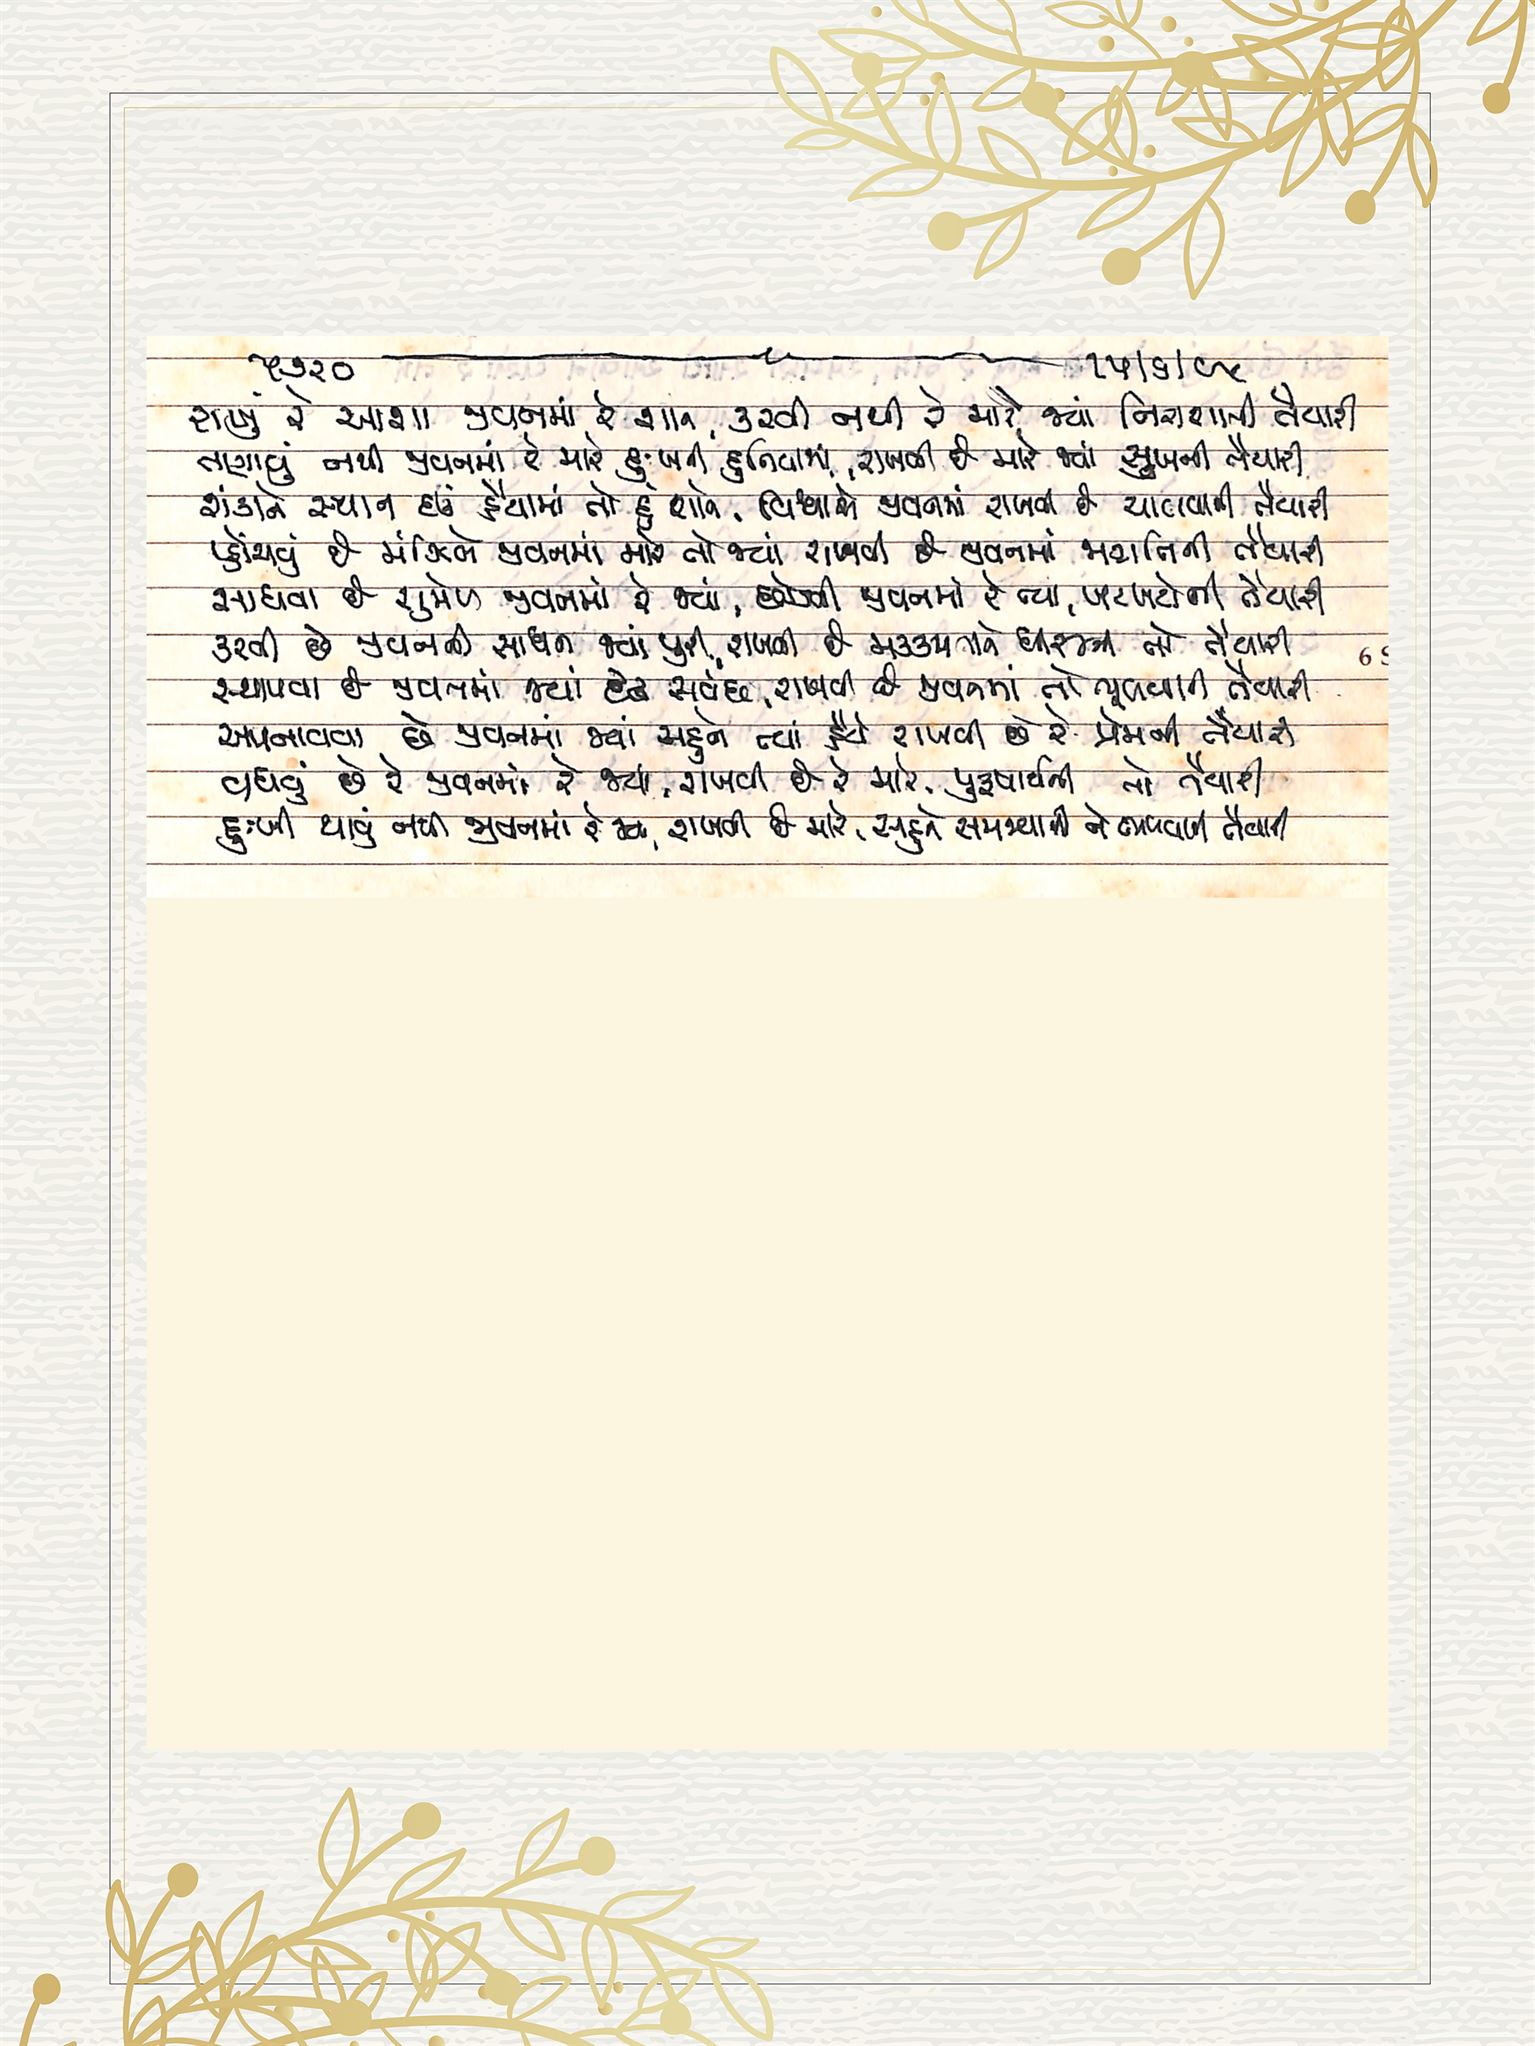 ૫૭૨૦ ૨૫/૬/૯૫
રાખું રે આશા જીવનમાં રે શાને, કરવી નથી રે મારે, જ્યાં નિરાશાની તૈયારી
તણાવું નથી જીવનમાં રે મારે દુઃખની દુનિયામાં, રાખવી છે મારે જ્યાં સુખની તૈયારી
શંકાને સ્થાન દઉં હૈયામાં તો હું શાને, વિશ્વાસે જીવનમાં રાખવી છે ચાલવાની તૈયારી
પ્હોંચવું છે મંઝિલે જીવનમાં મારે તો જ્યાં રાખવી છે જીવનમાં મહેનતની તૈયારી
સાધવા છે સુમેળ જીવનમાં રે જ્યાં, છોડવી જીવનમાં રે ત્યાં, ખટપટોની તૈયારી
કરવી છે જીવનની સાધના જ્યાં પુરી, રાખવી છે મક્કમતાને ધીરજની તો તૈયારી
સ્થાપવા છે જીવનમાં જ્યાં સંબંધ, રાખવી છે જીવનમાં તો ભૂલવાની તૈયારી
અપનાવવા છે જીવનમાં જ્યાં સહુને ત્યાં હૈયે રાખવી છે રે પ્રેમની તૈયારી
વધવું છે રે જીવનમાં રે જ્યાં, રાખવી છે રે મારે, પુરૂષાર્થની તો તૈયારી
દુઃખી થાવું નથી જીવનમાં રે જ્યાં, રાખવી છે મારે, સહુને સમજવાની ને તૈયારી